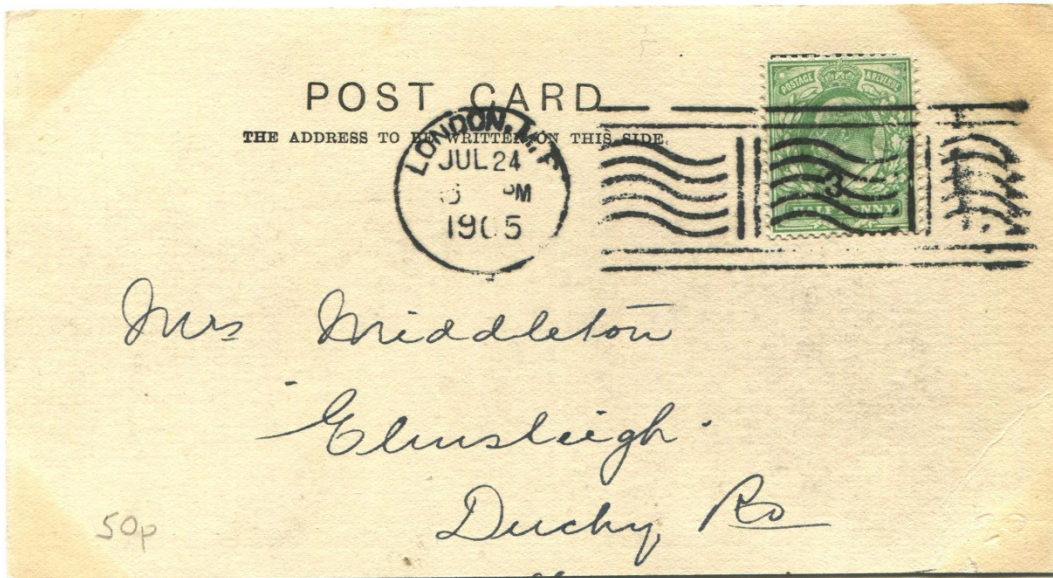 POST CARD
THE ADDRESS TO BE WRITTEN ON THIS SIDE.
LONDON.
JUL 24
PM
1905
POSTAGE & REVENUE
3
HALF PENNY
Mrs Middleton
"Elmsleigh"
Duchy Rd
50p